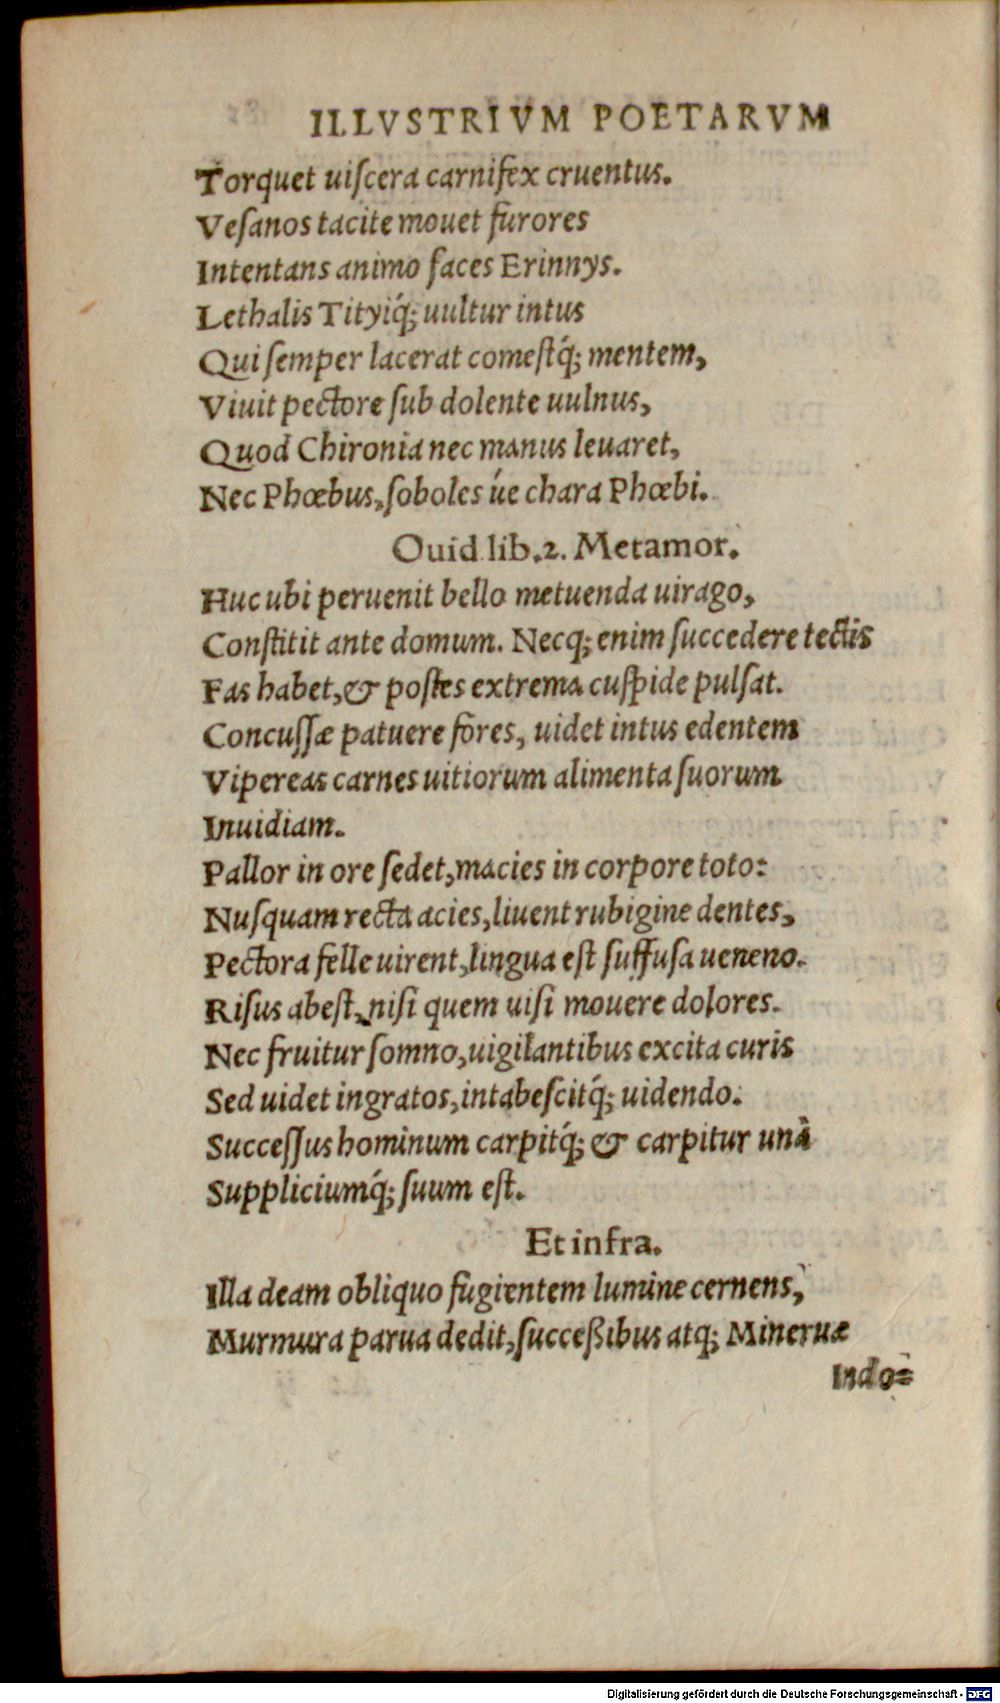 ILLVSTRIVM POETARVM
Torquet uiſcera carnifex cruentus.
Veſanos tacite mouet furores
Intentans animo faces Erinnys.
Lethalis Tityiq́; uultur intus
Qui ſemper lacerat comeſtq́; mentem,
Viuit pectore ſub dolente uulnus,
Quod Chironia nec manus leuaret,
Nec Phœbus, ſoboles úe chara Phœbi.
Ouid lib.2. Metamor.
Huc ubi peruenit bello metuenda uirago,
Conſtitit ante domum. Necq; enim ſuccedere tectis
Fas habet, & poſtes extrema cuſpide pulſat.
Concuſſæ patuere fores, uidet intus edentem
Vipereas carnes uitiorum alimenta ſuorum
Inuidiam.
Pallor in ore ſedet, macies in corpore toto:
Nuſquam recta acies, liuent rubigine dentes,
Pectora felle uirent, lingua eſt ſuffuſa ueneno.
Riſus abeſt, niſi quem uiſi mouere dolores.
Nec fruitur ſomno, uigilantibus excita curis
Sed uidet ingratos, intabeſcitq́; uidendo.
Succeſſus hominum carpitq́; & carpitur unà
Suppliciumq́; ſuum eſt.
Et infra.
Illa deam obliquo fugientem lumine cernens,
Murmura parua dedit, ſucceßibus atq; Mineruæ
Indo=
Digitalisierung gefördert durch die Deutsche Forschungsgemeinschaft - DFG